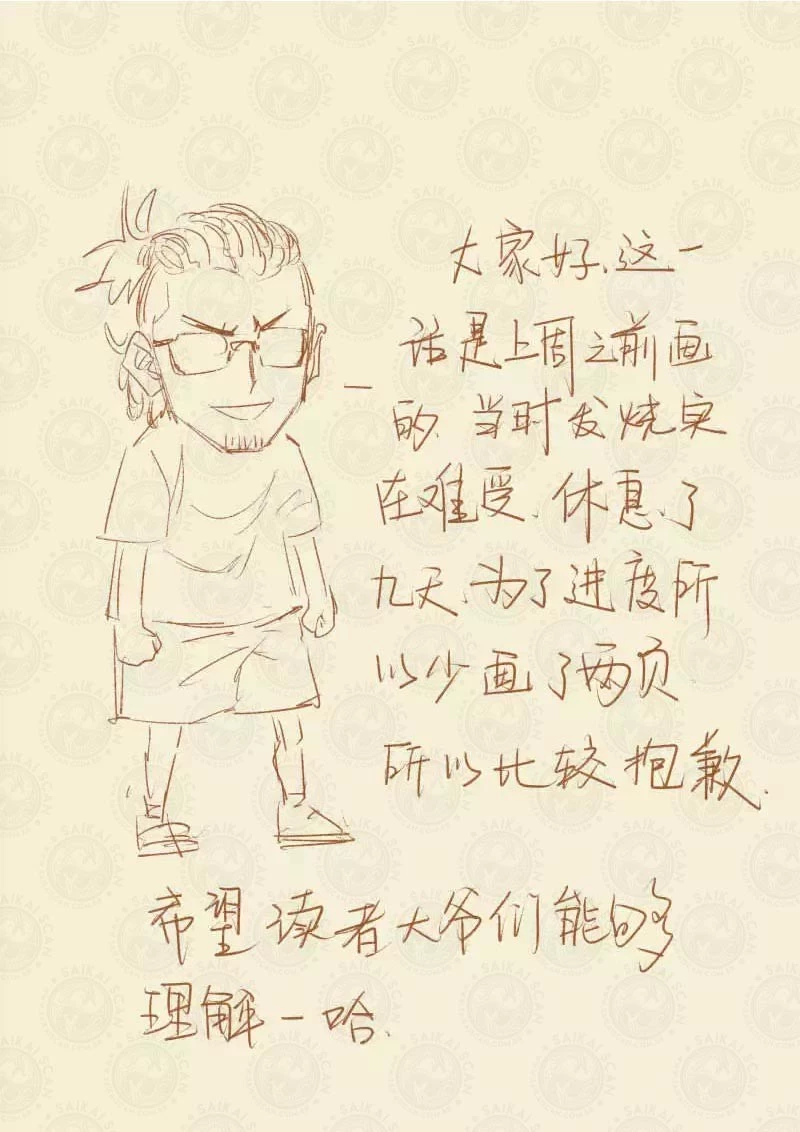 大家好、这一
话是上周之前画
的、当时发烧实
在难受、休息了
九天、为了进度所
以少画了两页
所以比较抱歉、
希望读者大爷们能够
理解一哈、
SAIKAI SCAN